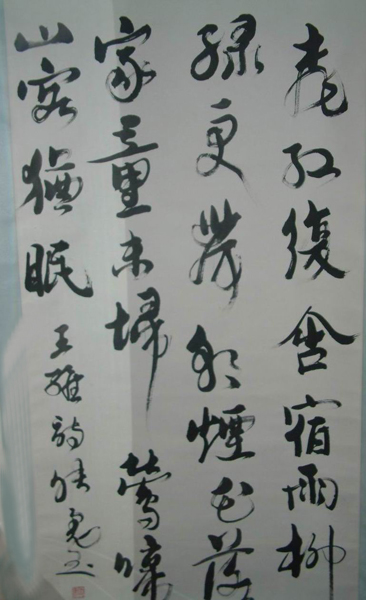 桃紅復含宿雨柳
綠更帶朝煙花落
家童未掃鶯啼
山客猶眠
王維詩